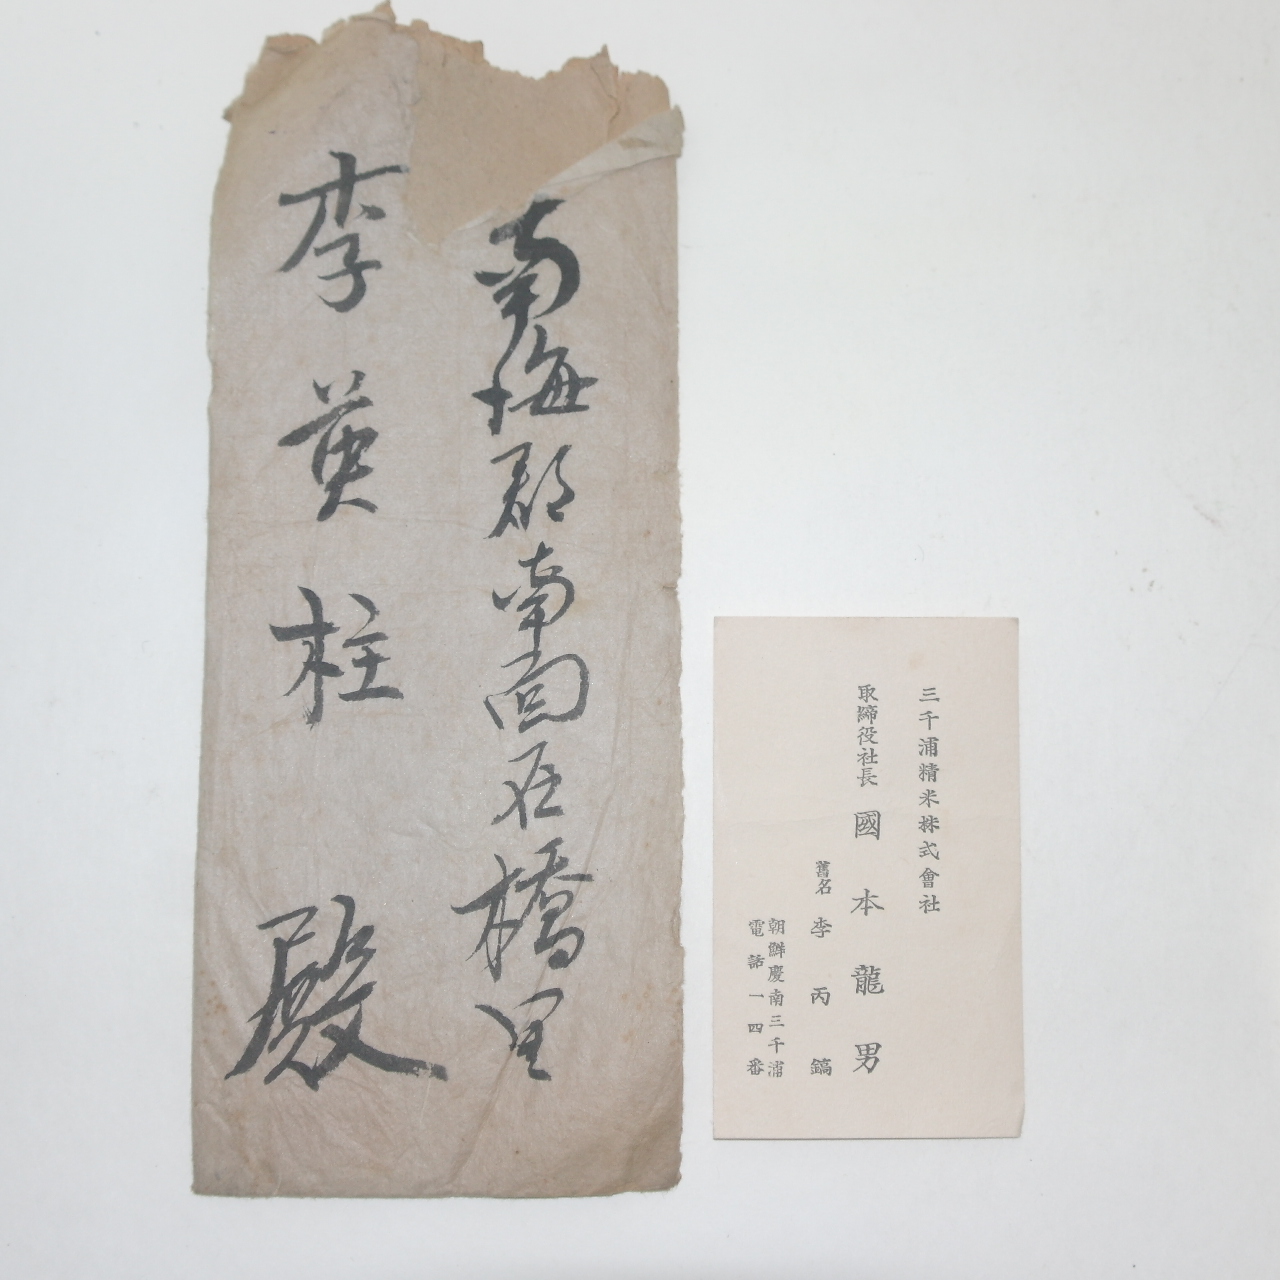 南海郡南面石橋里
李英柱 殿
三千浦精米株式會社
取締役社長 國本龍男
舊名 李丙鎬
朝鮮慶南三千浦
電話一四番